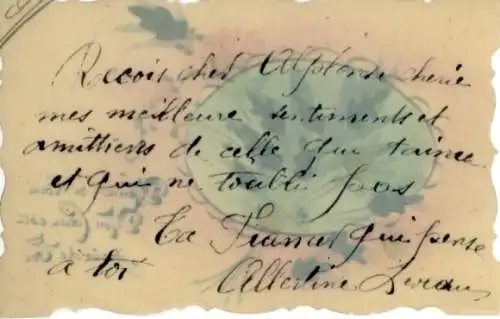 Recois cher Alphonse cherie
mes meilleure sentiments et
amittiers de celle qui taime
et qui ne toublie pas
Ta Fiancé qui pense
a toi Albertine